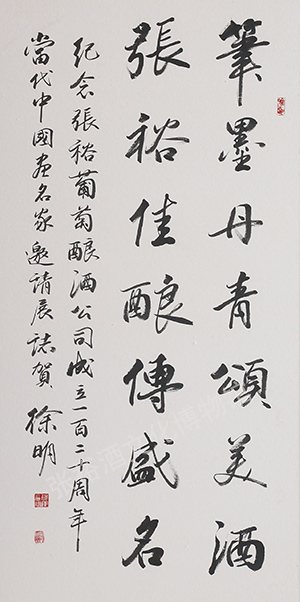 筆墨丹青頌美酒
張裕佳酿傳盛名
紀念張裕葡萄酿酒公司成立一百二十周年
當代中國画名家邀請展誌賀 徐明